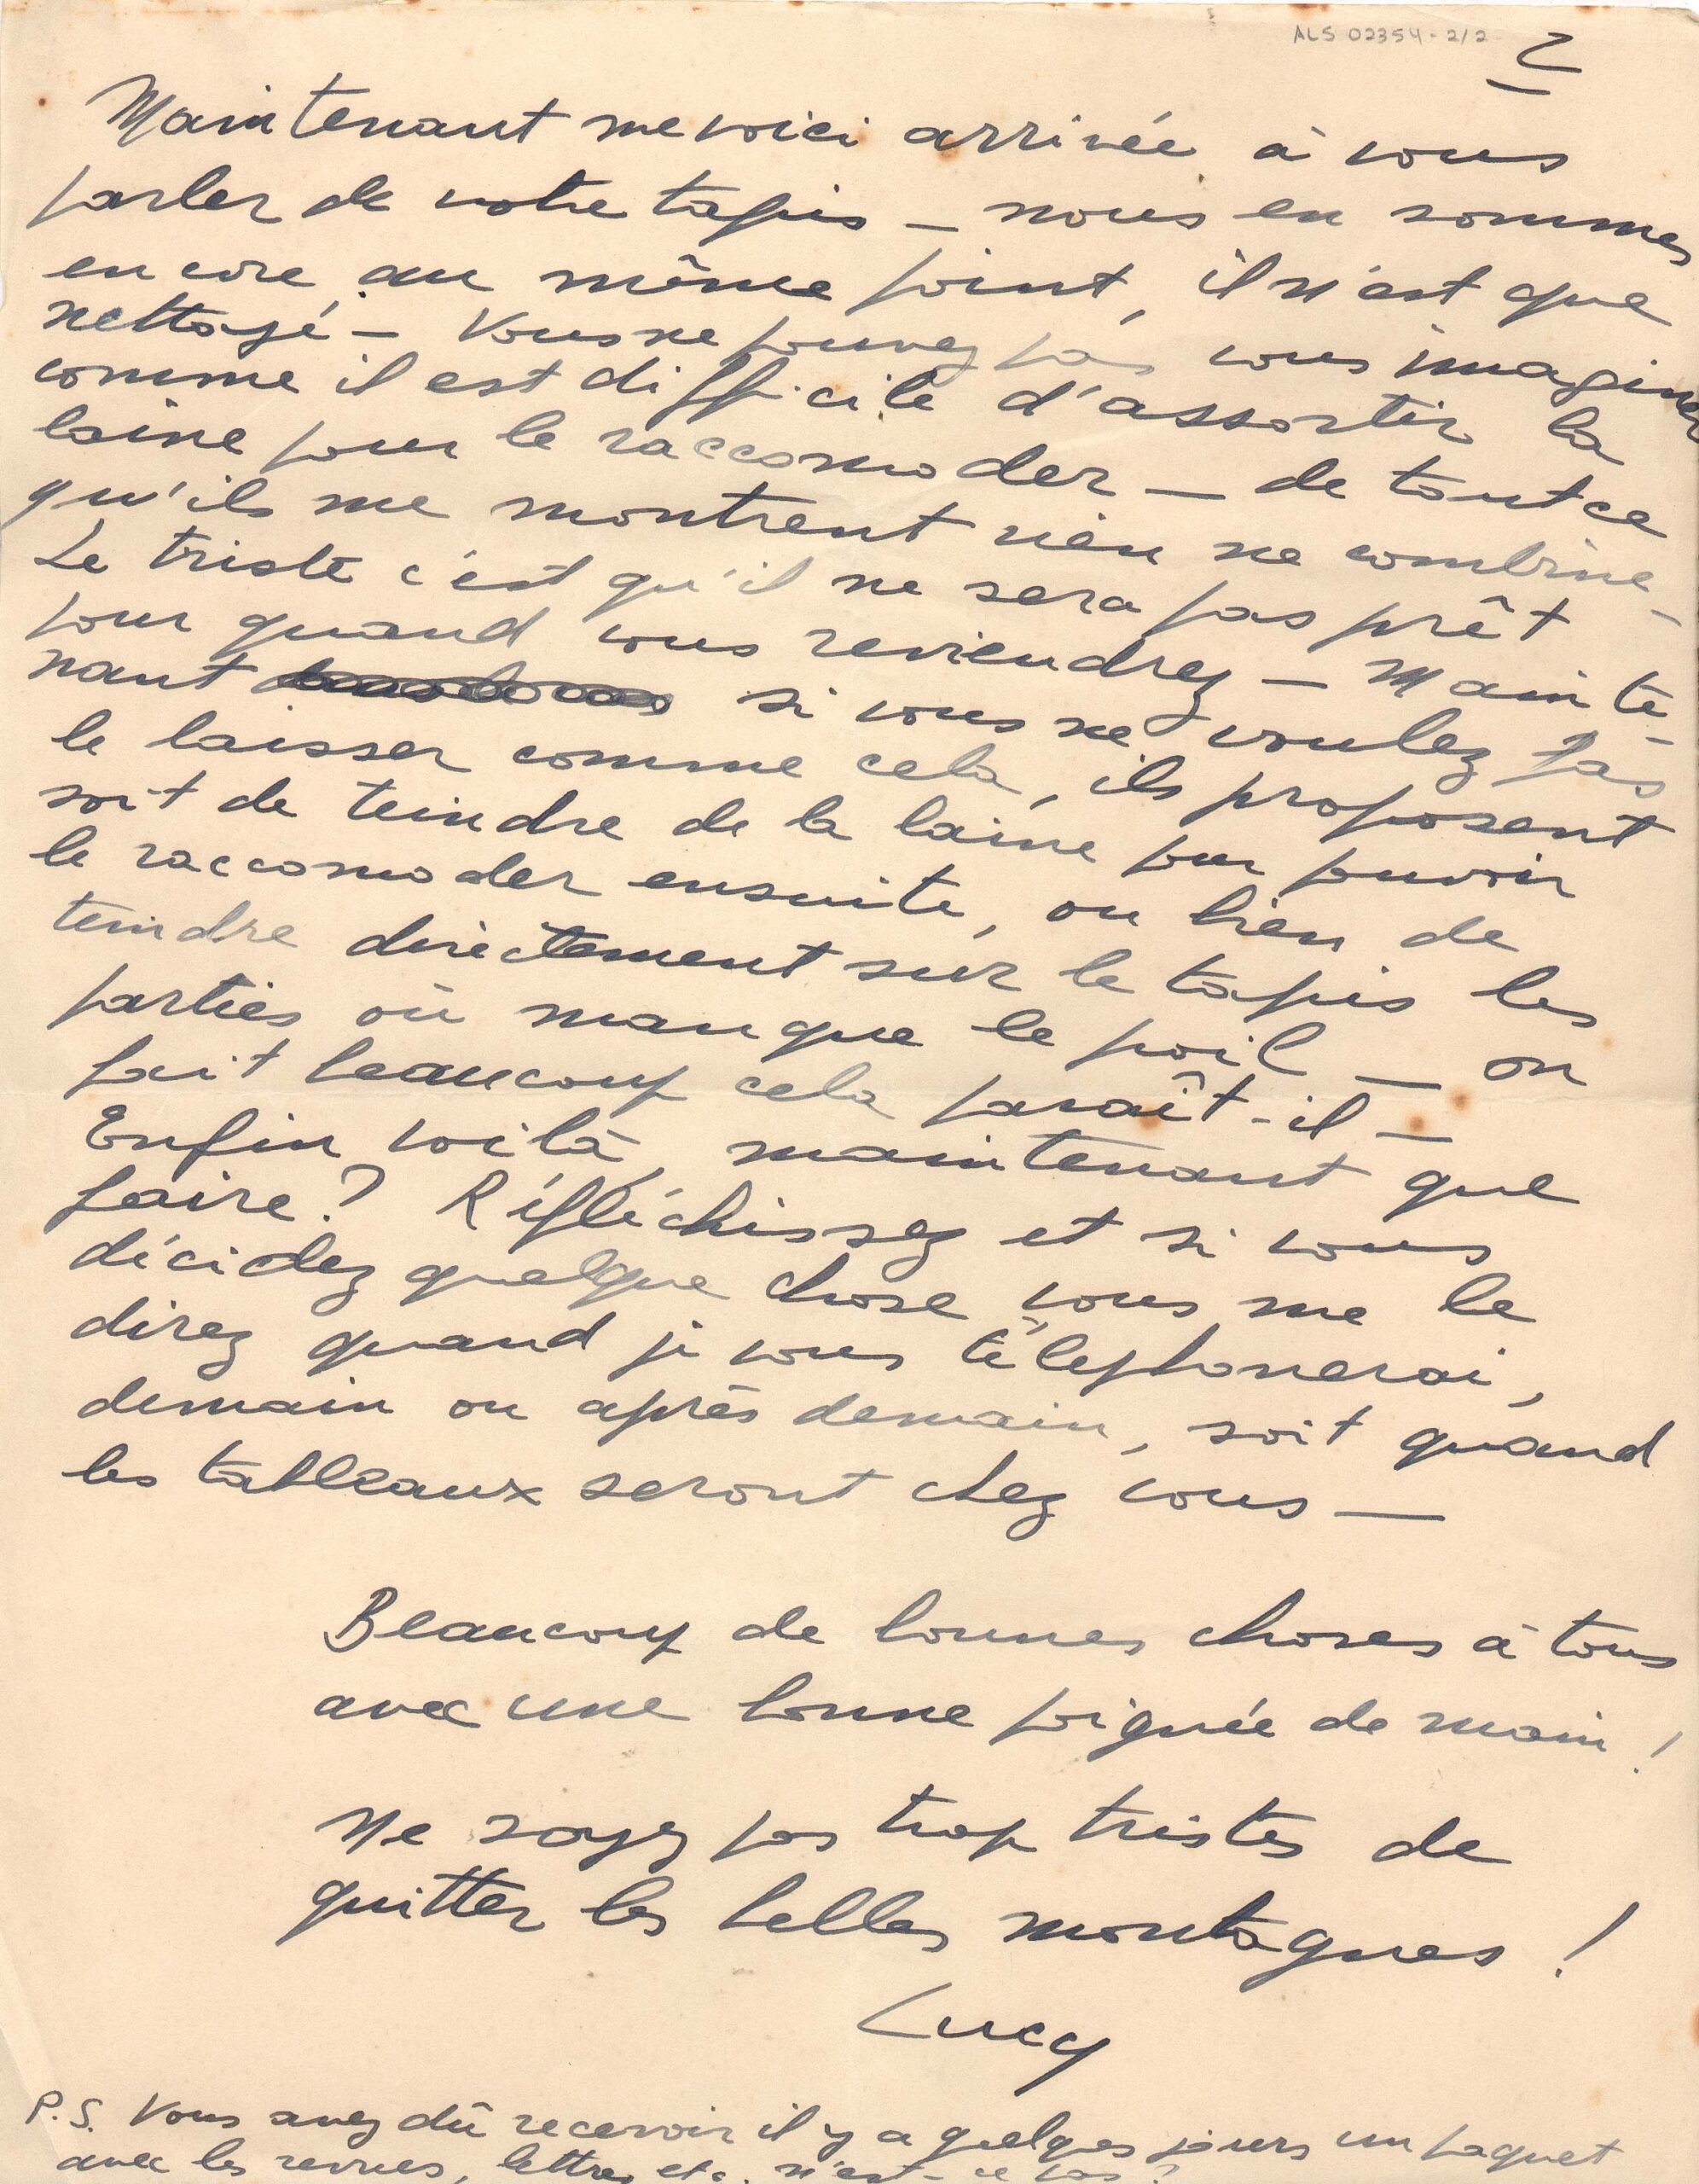 ALS 02354-2/2
2
Maintenant me voici arrivée à vous
parler de votre tapis — nous en sommes
encore au même point, il n'est que
nettoyé — Vous ne pouvez pas vous imaginer
comme il est difficile d'assortir la
laine pour le raccomoder — de tout ce
qu'ils me montrent rien ne combine —
Le triste c'est qu'il ne sera pas prêt
pour quand vous reviendrez — Mainte-
nant si vous ne voulez pas
le laisser comme cela, ils proposent
soit de teindre de la laine pour pouvoir
le raccomoder ensuite, ou bien de
teindre directement sur le tapis les
parties où manque le poil — on
fait beaucoup cela paraît-il —
Enfin voilà, maintenant que
faire? Réfléchissez et si vous
décidez quelque chose vous me le
direz quand je vous téléphonerai,
demain ou après demain, soit quand
les tableaux seront chez vous —
Beaucoup de bonnes choses à tous
avec une bonne poignée de main!
Ne soyez pas trop tristes de
quitter les belles montagnes!
Lucy
P.S. Vous avez dû recevoir il y a quelques jours un paquet
avec les revues, lettres etc. n'est-ce pas?